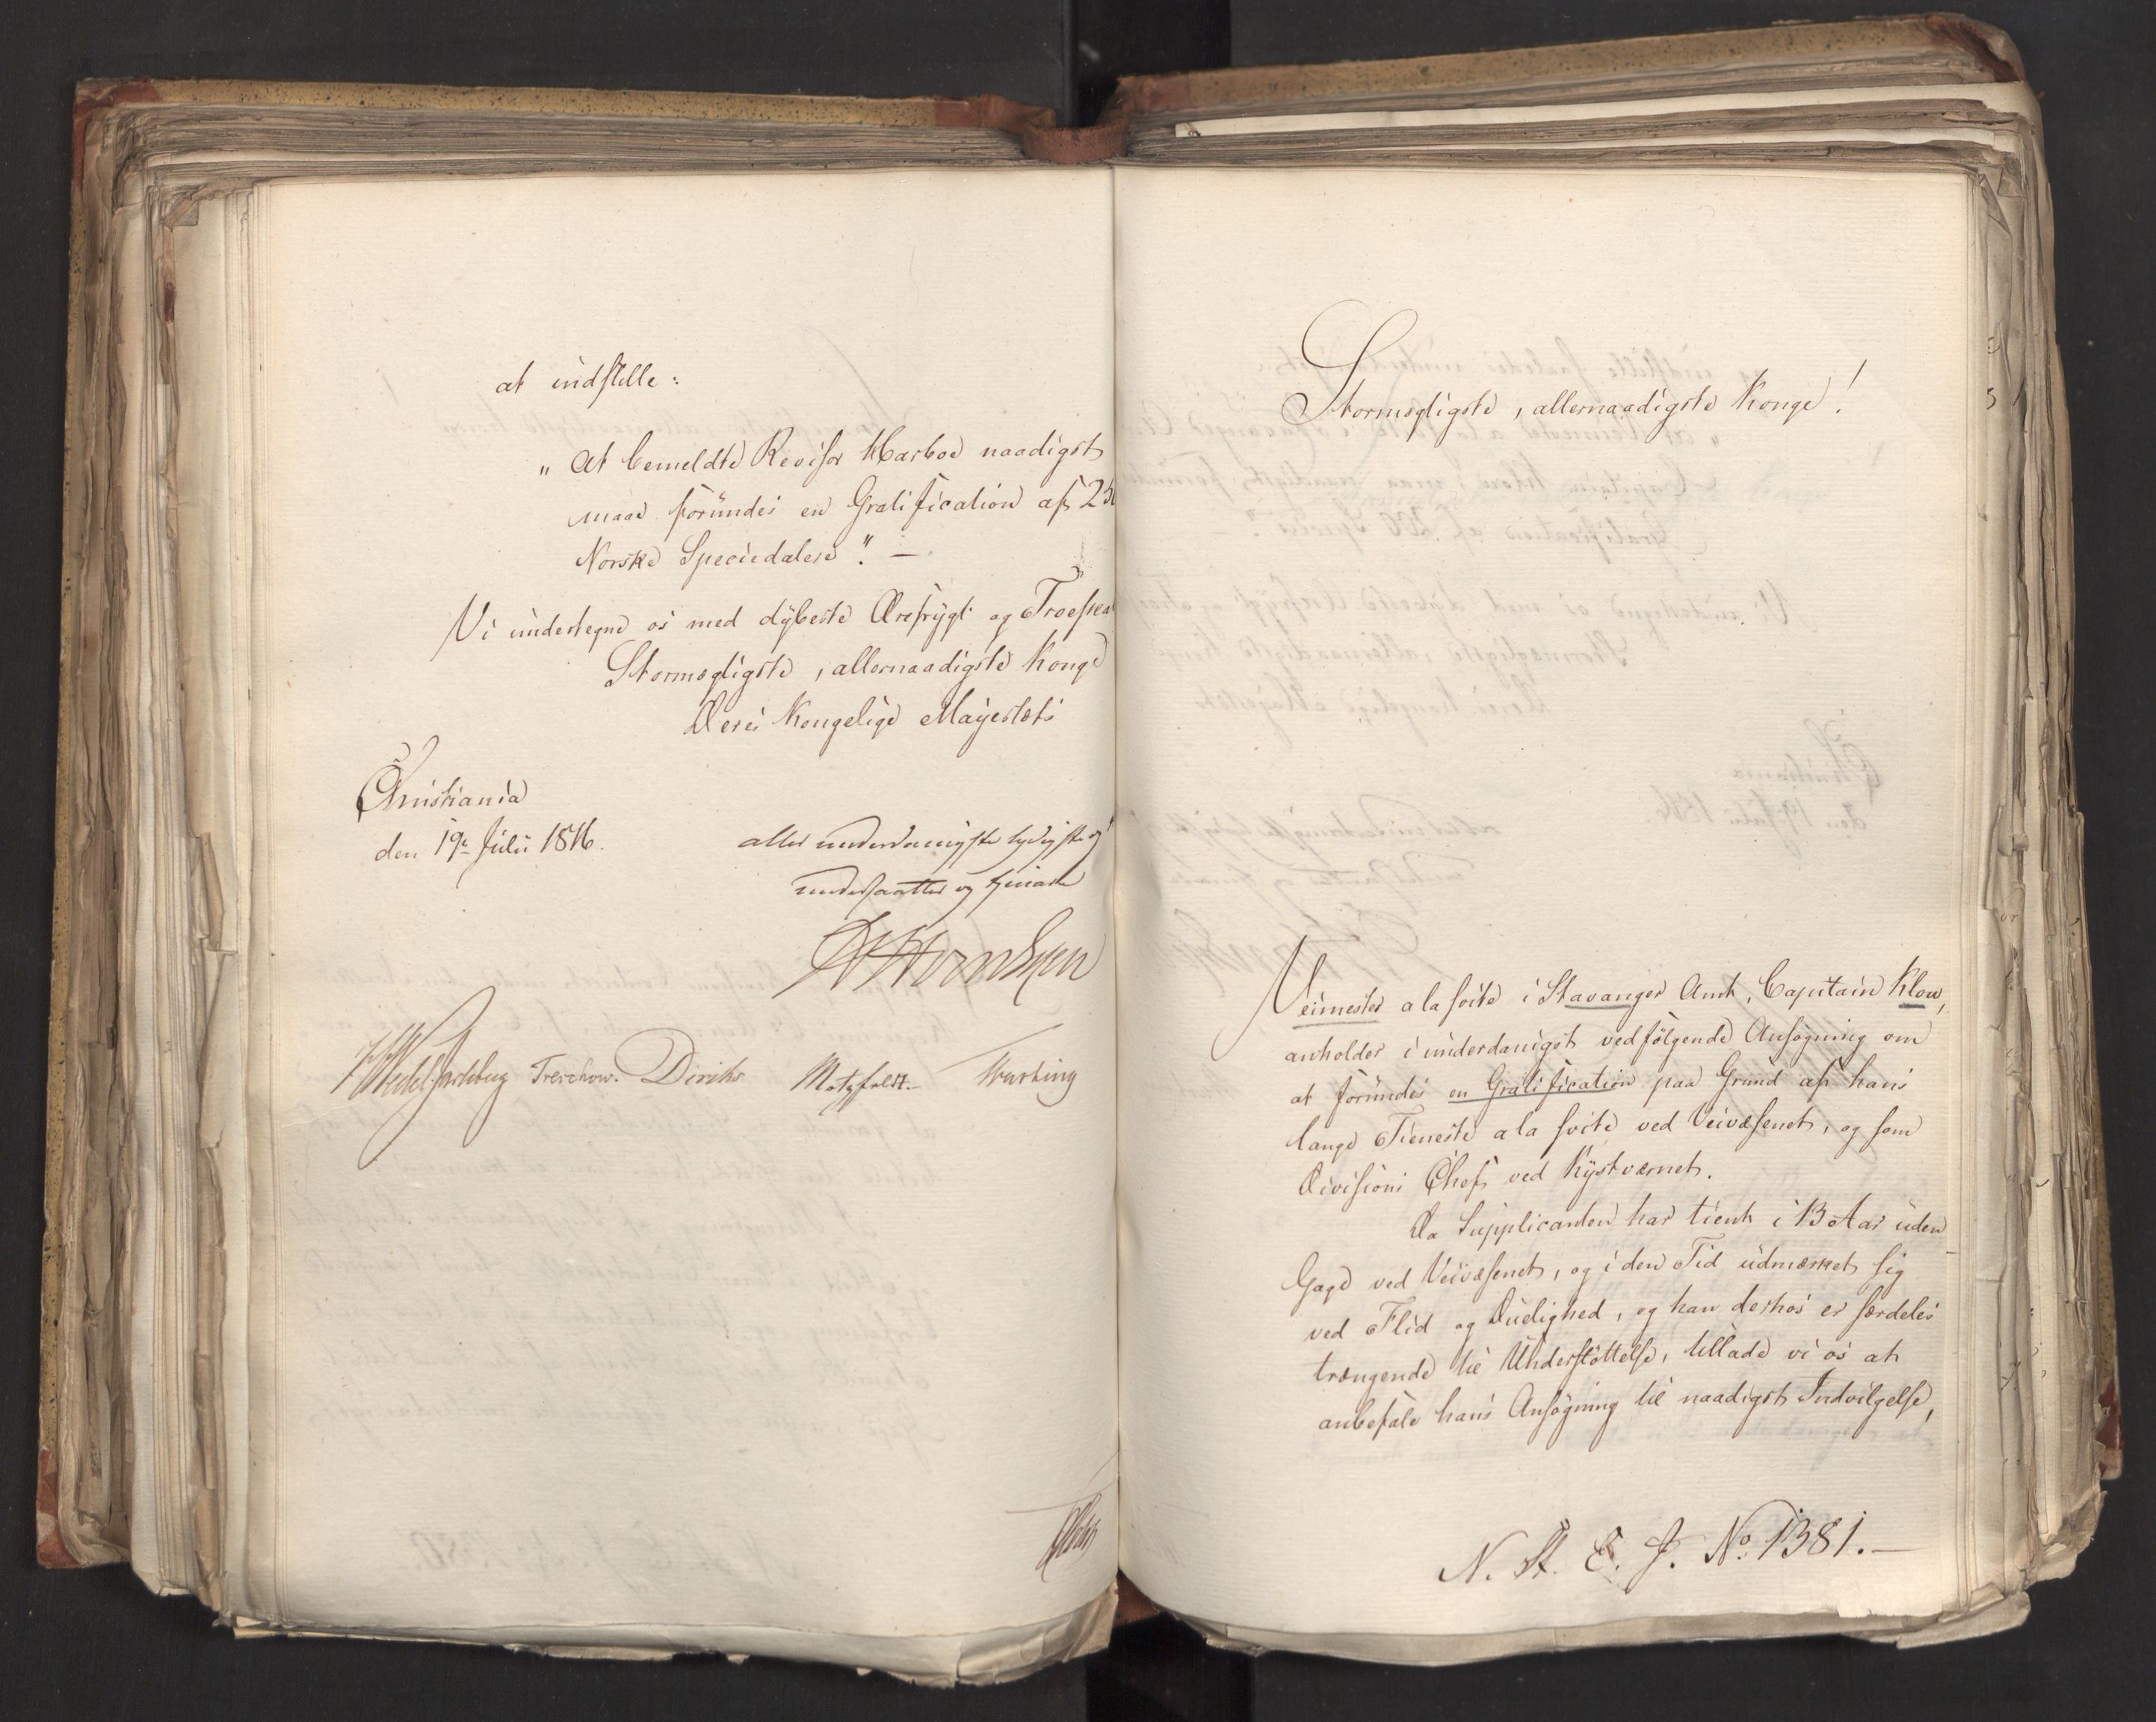 at indstille:
„ At bemeldte Revisor Harboe naadigst
maae forundes en Gratification af 250
Norske Speciedalere". —
Vi undertegne os med dybeste Ærefrygt og Troeska
Stormægtigste, allernaadigste Konge
Deres Kongelige Mayestæts
Christiania
den 19de Julii 1816.
aller underdanigste lydigste og
undersaatter og tjenere
Wedel Jarlsberg Treschow. Diriks Motzfeldt.
Stormægtigste, allernaadigste Konge!
Veimester a la suite i Stavanger Amt, Capitain Klow,
anholder i underdanigst vedfølgende Ansøgning om
at forundes en Gratification paa Grund af hans
lange Tieneste a la suite ved Veivæsenet, og som
Divisions Chef ved Kystværnet.
Da Supplicanten har tient i 13 Aar uden
Gage ved Veivæsenet, og i den Tid udmærket sig
ved Flid og Duelighed, og han derhos er særdeles
trængende til Understøttelse, tillade vi os at
anbefale hans Ansøgning til naadigst Indvilgelse,
N. St. E. J. No. 1381. —